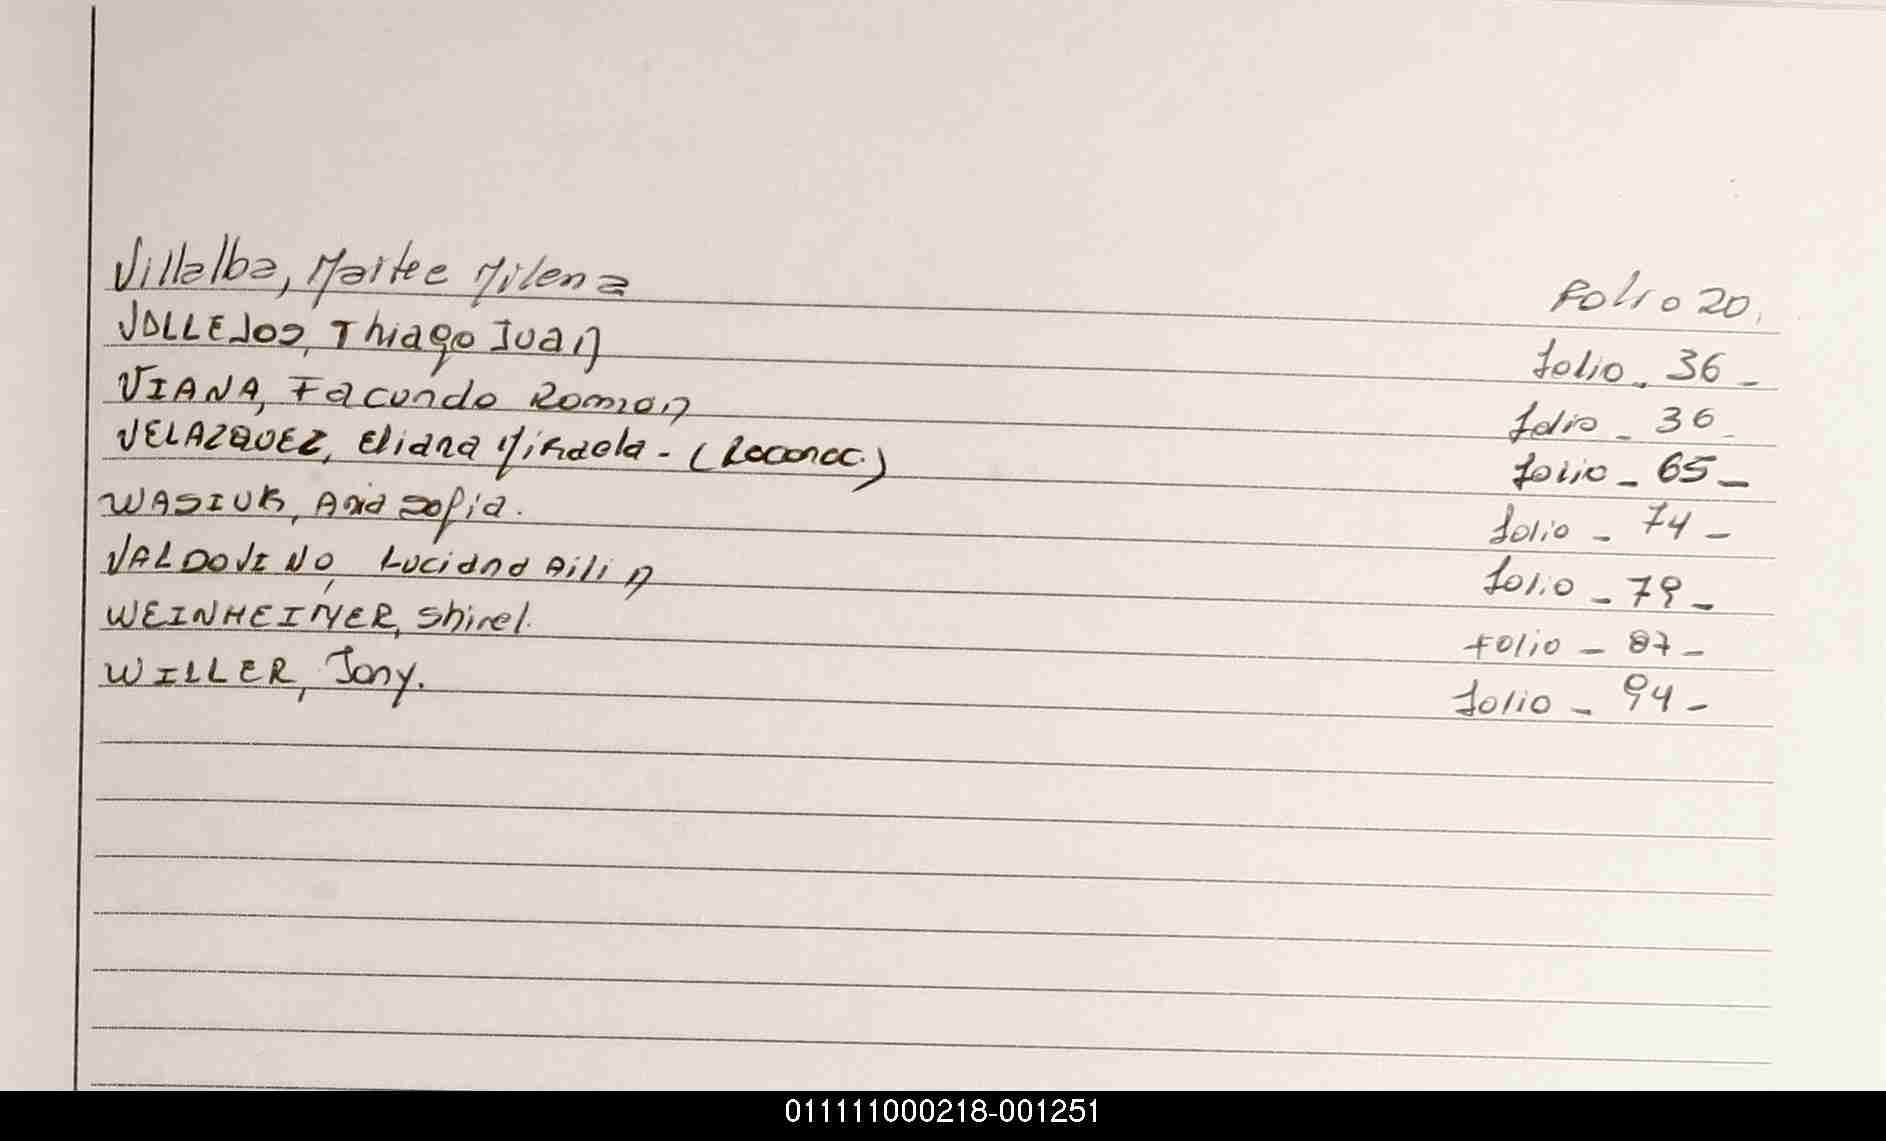 Villalba, Maitee Milena Folio 20.
VALLEJOS, Thiago Juan folio - 36 -
VIANA, Facundo Roman folio - 36 -
VELAZQUEZ, Eliana Mikaela - (Reconoc.) folio - 65 -
WASIUK, Ania Sofia. folio - 74 -
VALDOVINO, Luciana Ailin folio - 79 -
WEINHEIMER, Shirel. folio - 87 -
WILLER, Jony. folio - 94 -
011111000218-001251